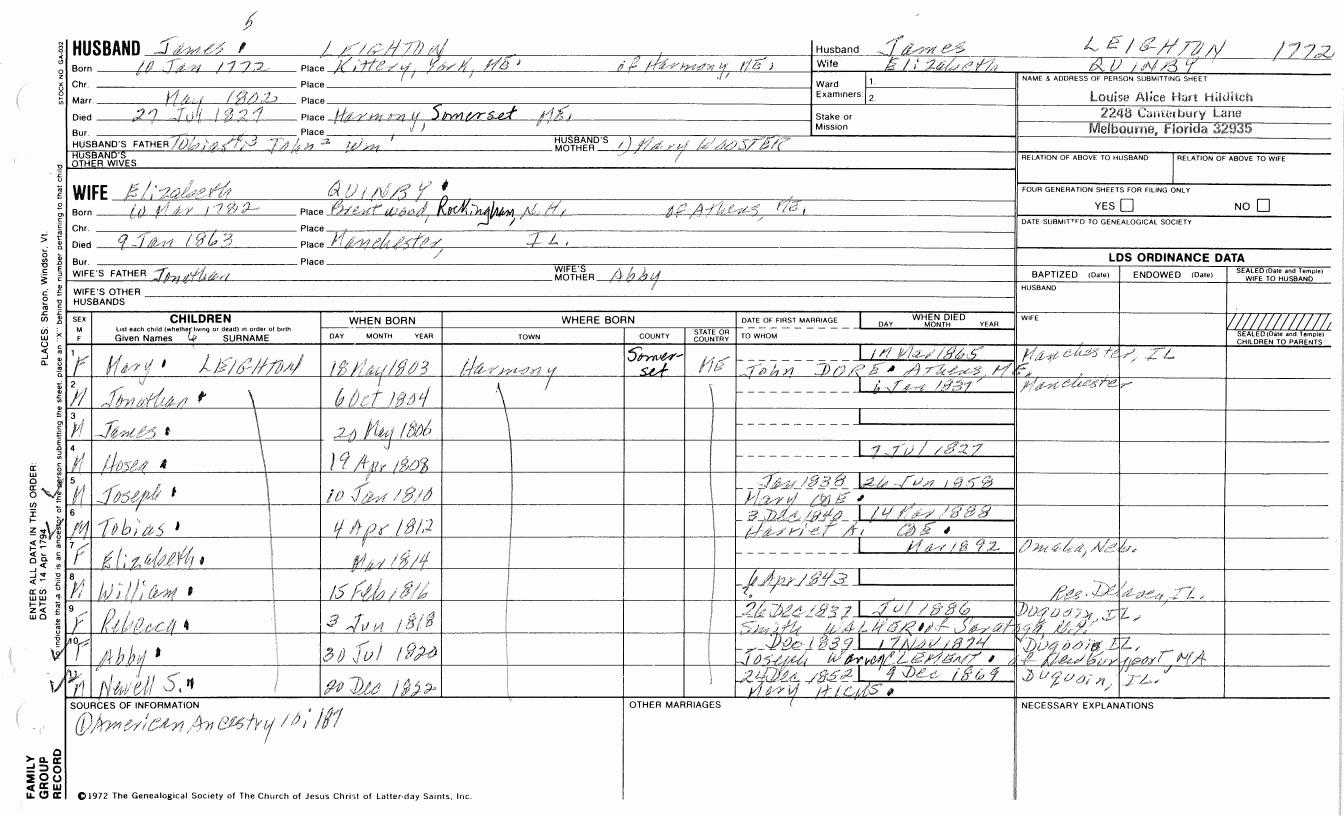 5
HUSBAND James LEIGHTON
Born 10 Jan 1772 Place Kittery, York, ME. of Harmony, ME.
Chr. Place
Marr. May 1802 Place
Died 27 Jul 1829 Place Harmony, Somerset ME.
Bur. Place
HUSBAND'S FATHER Tobias John Wm HUSBAND'S MOTHER 1) Mary WOOSTER
HUSBAND'S OTHER WIVES
WIFE Elizabeth QUINBY
Born 10 Mar 1782 Place Brentwood, Rockingham, N.H. of Athens, ME.
Chr. Place
Died 9 Jan 1863 Place Manchester, IL.
Bur. Place
WIFE'S FATHER Jonathan WIFE'S MOTHER Abby
WIFE'S OTHER HUSBANDS
Husband James LEIGHTON 1772
Wife Elizabeth QUINBY
Ward Examiners 1. 2.
Stake or Mission
NAME & ADDRESS OF PERSON SUBMITTING SHEET
Louise Alice Hart Hilditch
2248 Canterbury Lane
Melbourne, Florida 32935
RELATION OF ABOVE TO HUSBAND RELATION OF ABOVE TO WIFE
FOUR GENERATION SHEETS FOR FILING ONLY
YES NO
DATE SUBMITTED TO GENEALOGICAL SOCIETY
LDS ORDINANCE DATA
BAPTIZED (Date) ENDOWED (Date) SEALED (Date and Temple) WIFE TO HUSBAND
HUSBAND
WIFE
SEALED (Date and Temple) CHILDREN TO PARENTS
SEX M F
CHILDREN
List each child (whether living or dead) in order of birth
Given Names SURNAME
WHEN BORN
DAY MONTH YEAR
WHERE BORN
TOWN COUNTY STATE OR COUNTRY
DATE OF FIRST MARRIAGE
TO WHOM
WHEN DIED
DAY MONTH YEAR
1 F Mary LEIGHTON 18 May 1803 Harmony Somerset ME Mar 1865 Manchester, IL
John DORE Athens, ME.
2 M Jonathan 6 Oct 1804 6 Jan 1837 Manchester
3 M James 20 May 1806
4 M Hosea 19 Apr 1808 7 Jul 1827
5 M Joseph 10 Jan 1810 Jan 1838 26 Jun 1858
Mary COE
6 M Tobias 4 Apr 1812 3 Dec 1840 14 Mar 1888
Harriet A. COE
7 F Elizabeth Mar 1814 Mar 1892 Omaha, Neb.
8 M William 15 Feb 1816 6 Apr 1843 Res. Delaven, IL.
9 F Rebecca 3 Jun 1818 26 Dec 1837 Jul 1886 Duquoin, IL.
Smith of Saratoga N.Y.
10 F Abby 30 Jul 1820 Dec 1839 17 Nov 1874 Duquoin IL.
Joseph Warren CLEMENT of Newburyport, MA
11 M Newell S. 20 Dec 1822 24 Dec 1852 9 Dec 1869 Duquoin, IL.
Mary HICKS
SOURCES OF INFORMATION
① American Ancestry 10:187
OTHER MARRIAGES
NECESSARY EXPLANATIONS
©1972 The Genealogical Society of The Church of Jesus Christ of Latter-day Saints, Inc.
FAMILY GROUP RECORD
ENTER ALL DATA IN THIS ORDER:
DATES: 14 Apr 1794
PLACES: Sharon, Windsor, Vt.
STOCK NO. GA-032